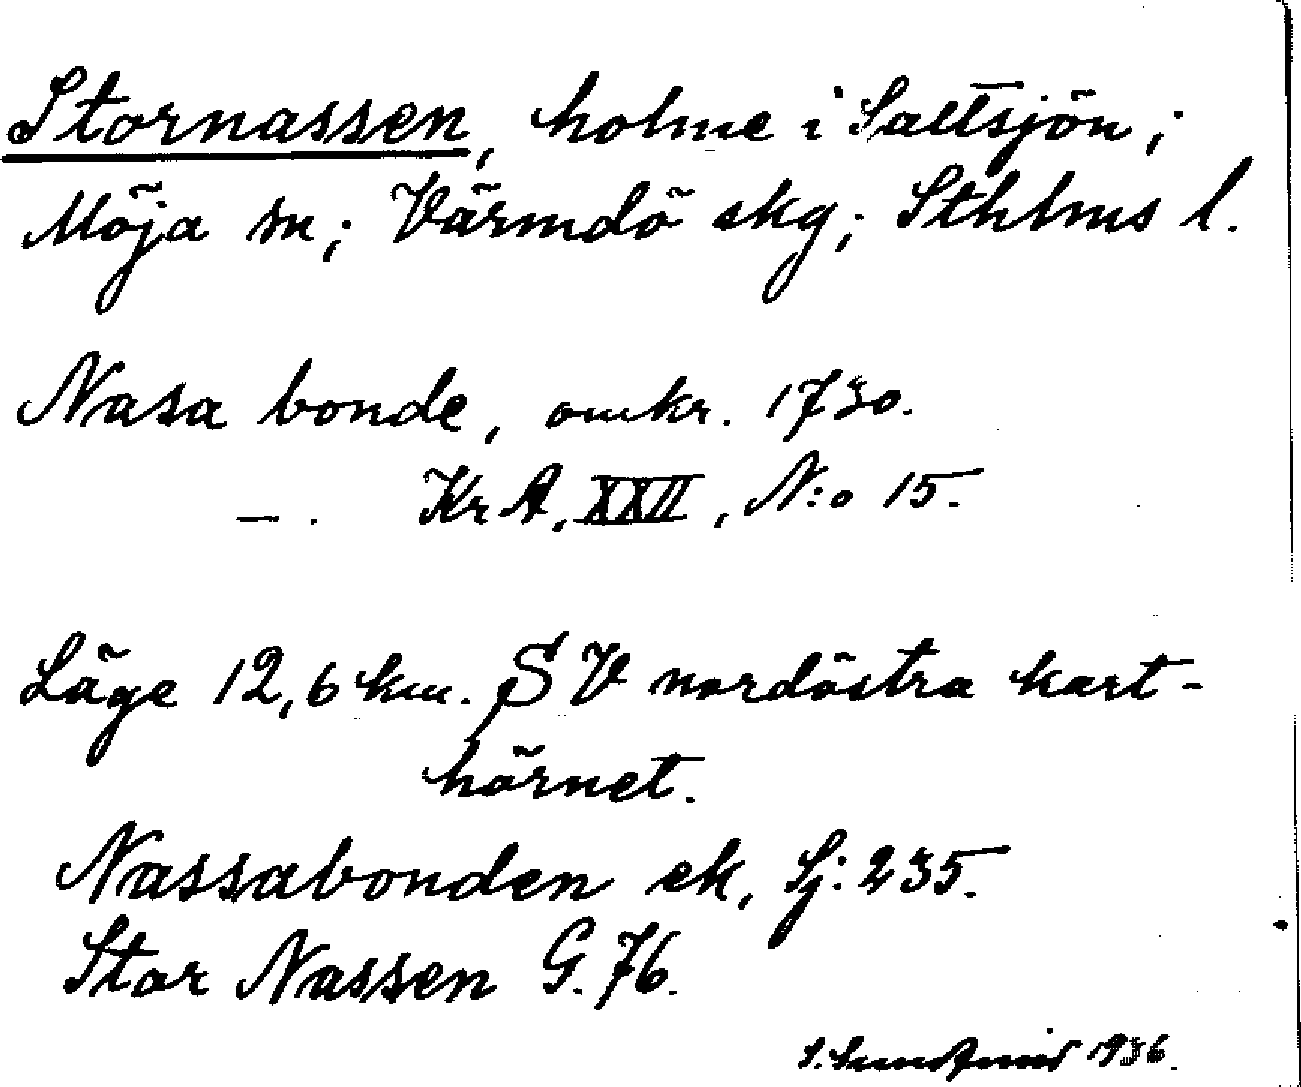 Stornassen, holme i Saltsjön;
Möja sn; Värmdö skg; Sthlms l.
Nasa bonde, omkr. 1730.
— . KrA, XXII, N:o 15.
Läge 12,6 km. SV nordöstra kart-
hörnet.
Nassabonden ek, Sj: 235.
Stor Nassen G. 76.
S. 1936.